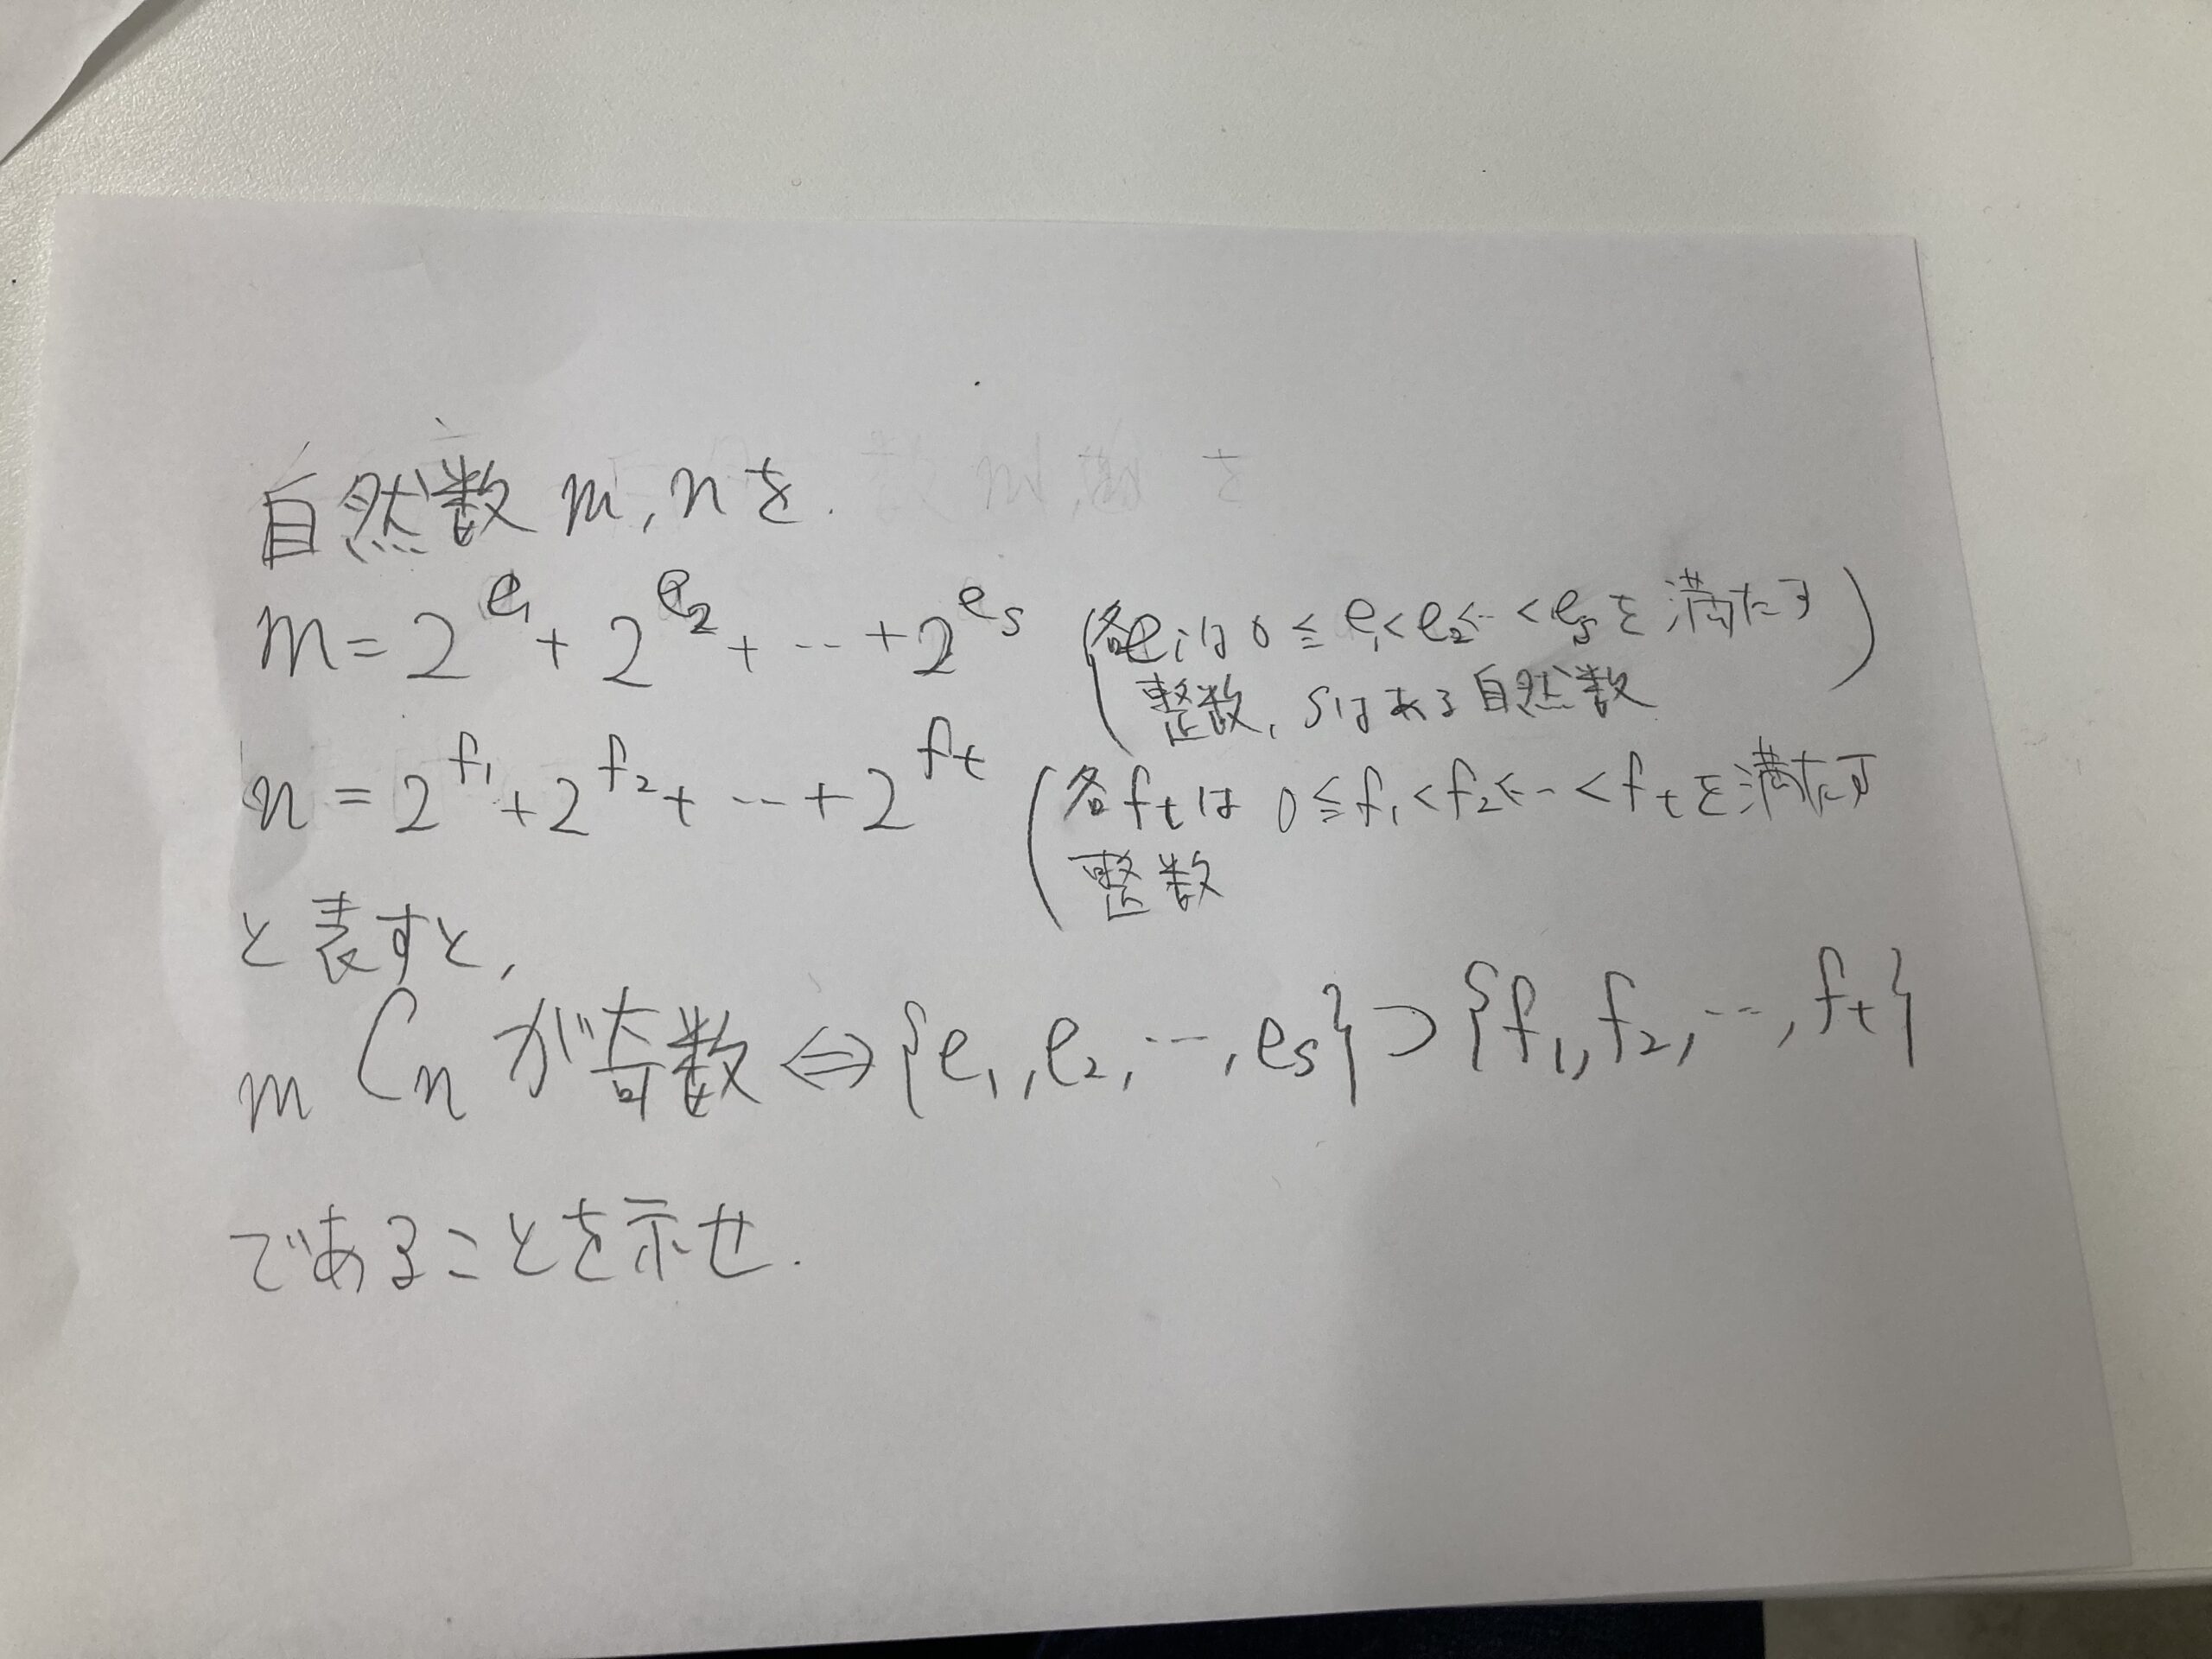 自然数 m, n を.
m = 2^{e_1} + 2^{e_2} + … + 2^{e_s} (各e_iは 0 ≦ e_1 < e_2 < … < e_s を満たす
整数, sはある自然数)
n = 2^{f_1} + 2^{f_2} + … + 2^{f_t} (各f_tは 0 ≦ f_1 < f_2 < … < f_t を満たす
整数
と表すと,
_mC_n が奇数 ⇔ {e_1, e_2, …, e_s} ⊃ {f_1, f_2, …, f_t}
であることを示せ.